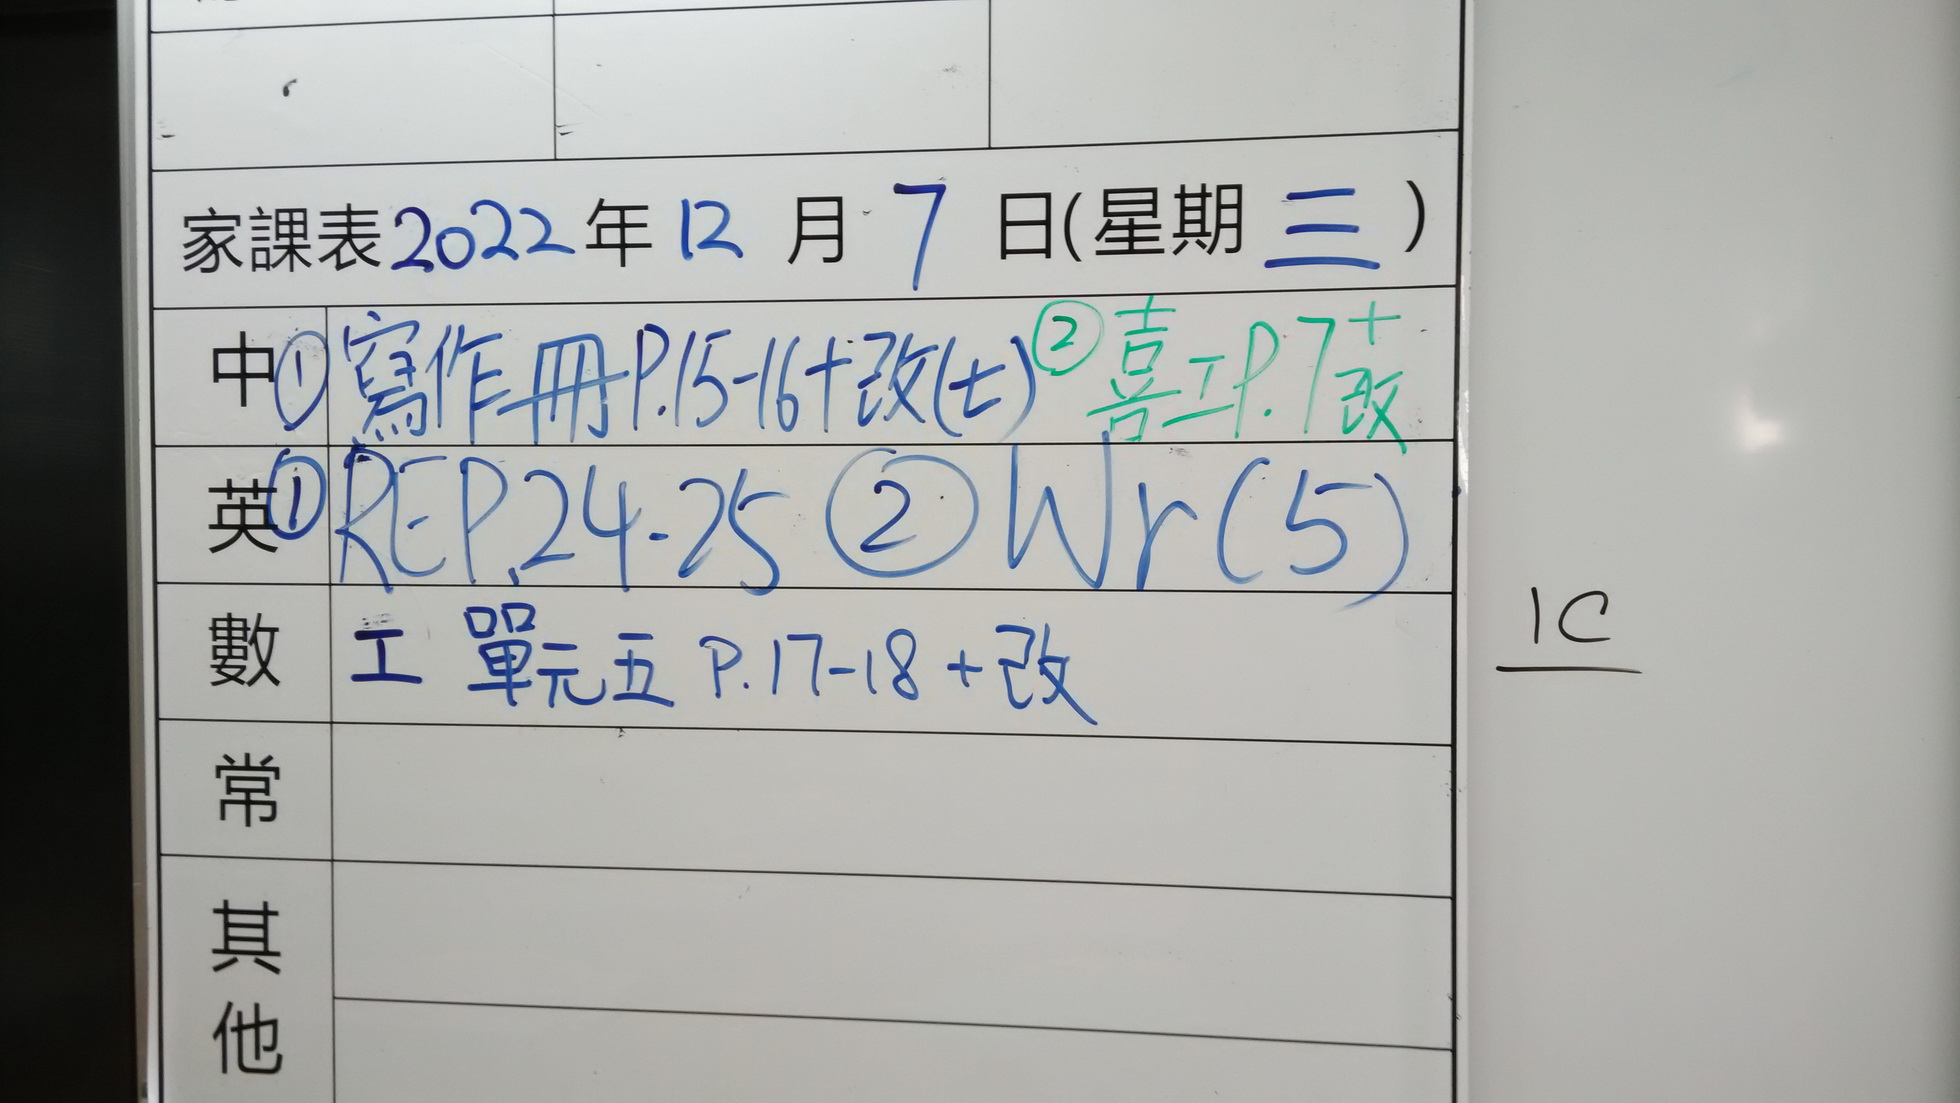 家課表2022年12月7日(星期三)
中①寫作冊P.15-16+改(七)②喜工P.7+改
英①REP.24-25②Wr(5)
數 工 單元五 P.17-18+改
1C
常
其他